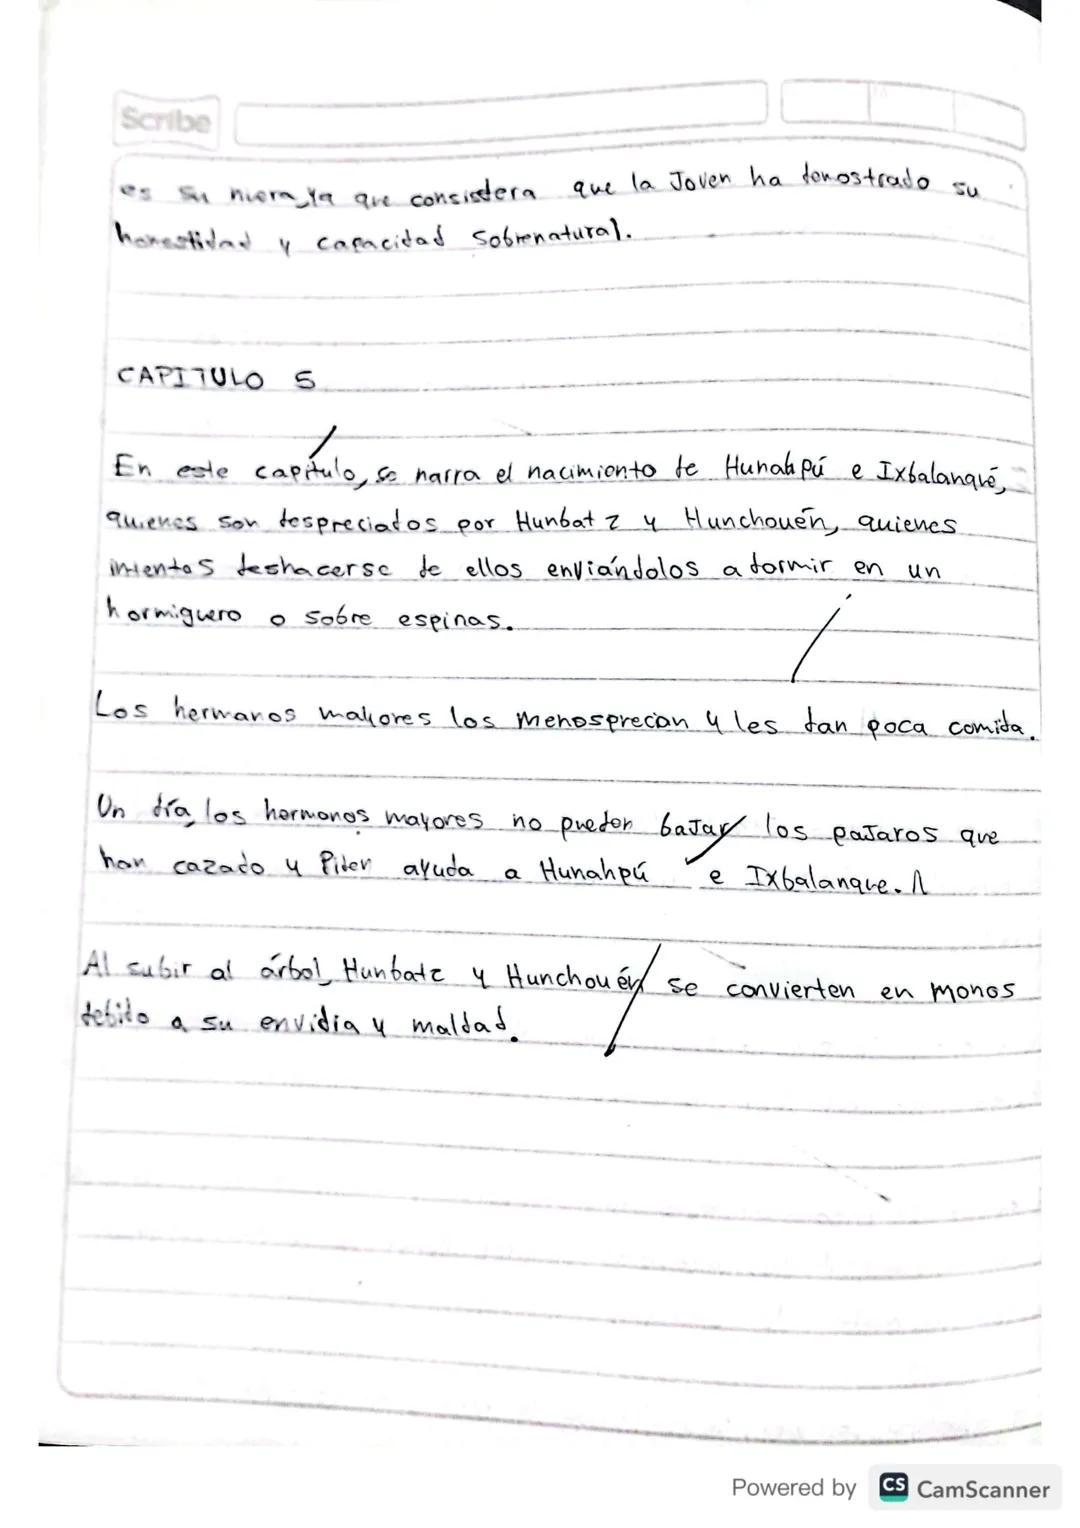 Scribe
es su nuera, ya que considera que la Joven ha demostrado su
honestidad y capacidad sobrenatural.
CAPITULO 5
En este capítulo, se narra el nacimiento de Hunahpú e Ixbalanqué,
quienes son despreciados por Hunbatz y Hunchouén, quienes
intentas deshacerse de ellos enviándolos a dormir en un
hormiguero o sobre espinas.
Los hermanos mayores los menosprecian y les dan poca comida.
Un día, los hermanos mayores no pueden bajar los pajaros que
han cazado y Piden ayuda a Hunahpú e Ixbalanque.
Al subir al árbol, Hunbatz y Hunchouén se convierten en monos
debido a su envidia y maldad.
Powered by CS CamScanner